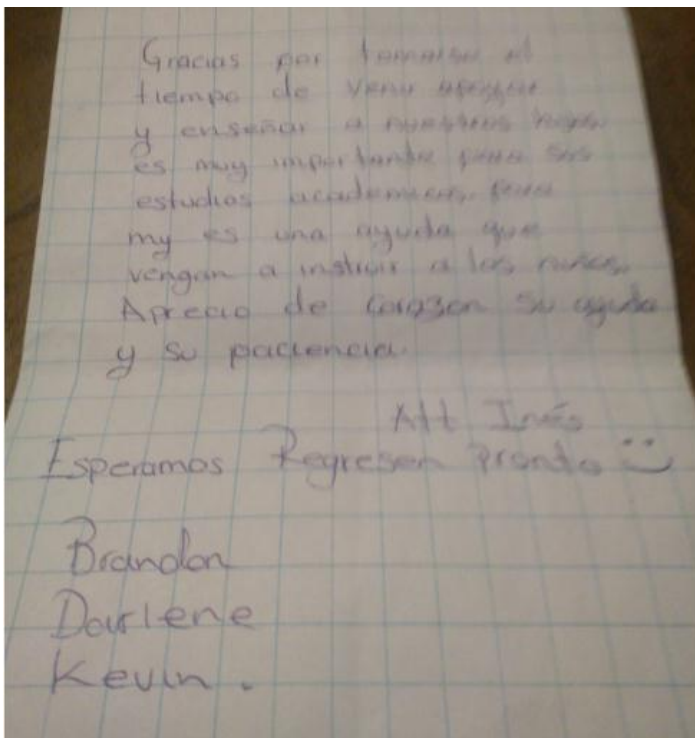 Gracias por tomarse el
tiempo de venir apoyar
y enseñar a nuestros hijos,
es muy importante para sus
estudios academicos, para
my es una ayuda que
vengan a instruir a los niños,
Aprecio de Corazon su ayuda
y su paciencia.
Att Inés
Esperamos Regresen Pronto
Brandon
Darlene
Kevin.